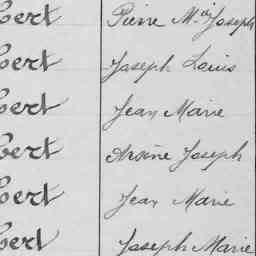 bert Pierre M.ie Joseph
bert Joseph Louis
bert Jean Marie
bert Arsène Joseph
bert Jean Marie
bert Joseph Marie